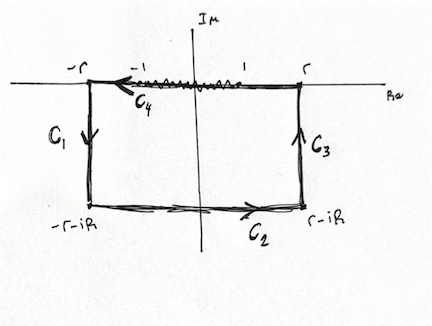 Im
-r -1 1 r
Re
C4
C1 C3
-r-iR r-iR
C2